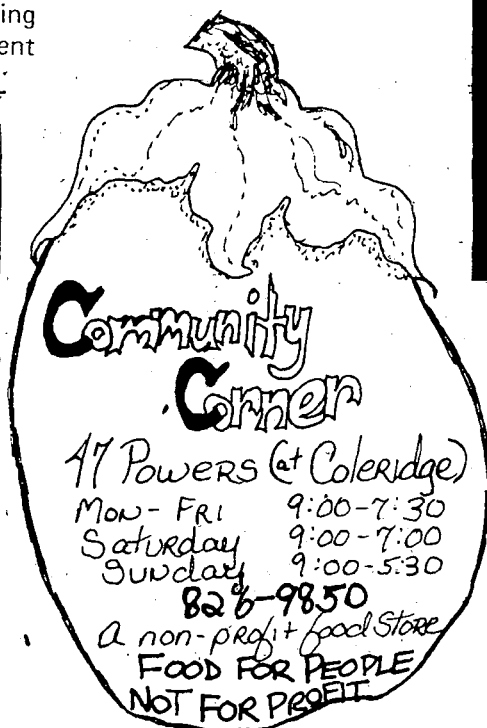 ing
ent
Community
Corner
47 Powers (at Coleridge)
Mon - Fri 9:00-7:30
Saturday 9:00-7:00
Sunday 9:00-5:30
826-9850
A non-profit food Store
FOOD FOR PEOPLE
NOT FOR PROFIT